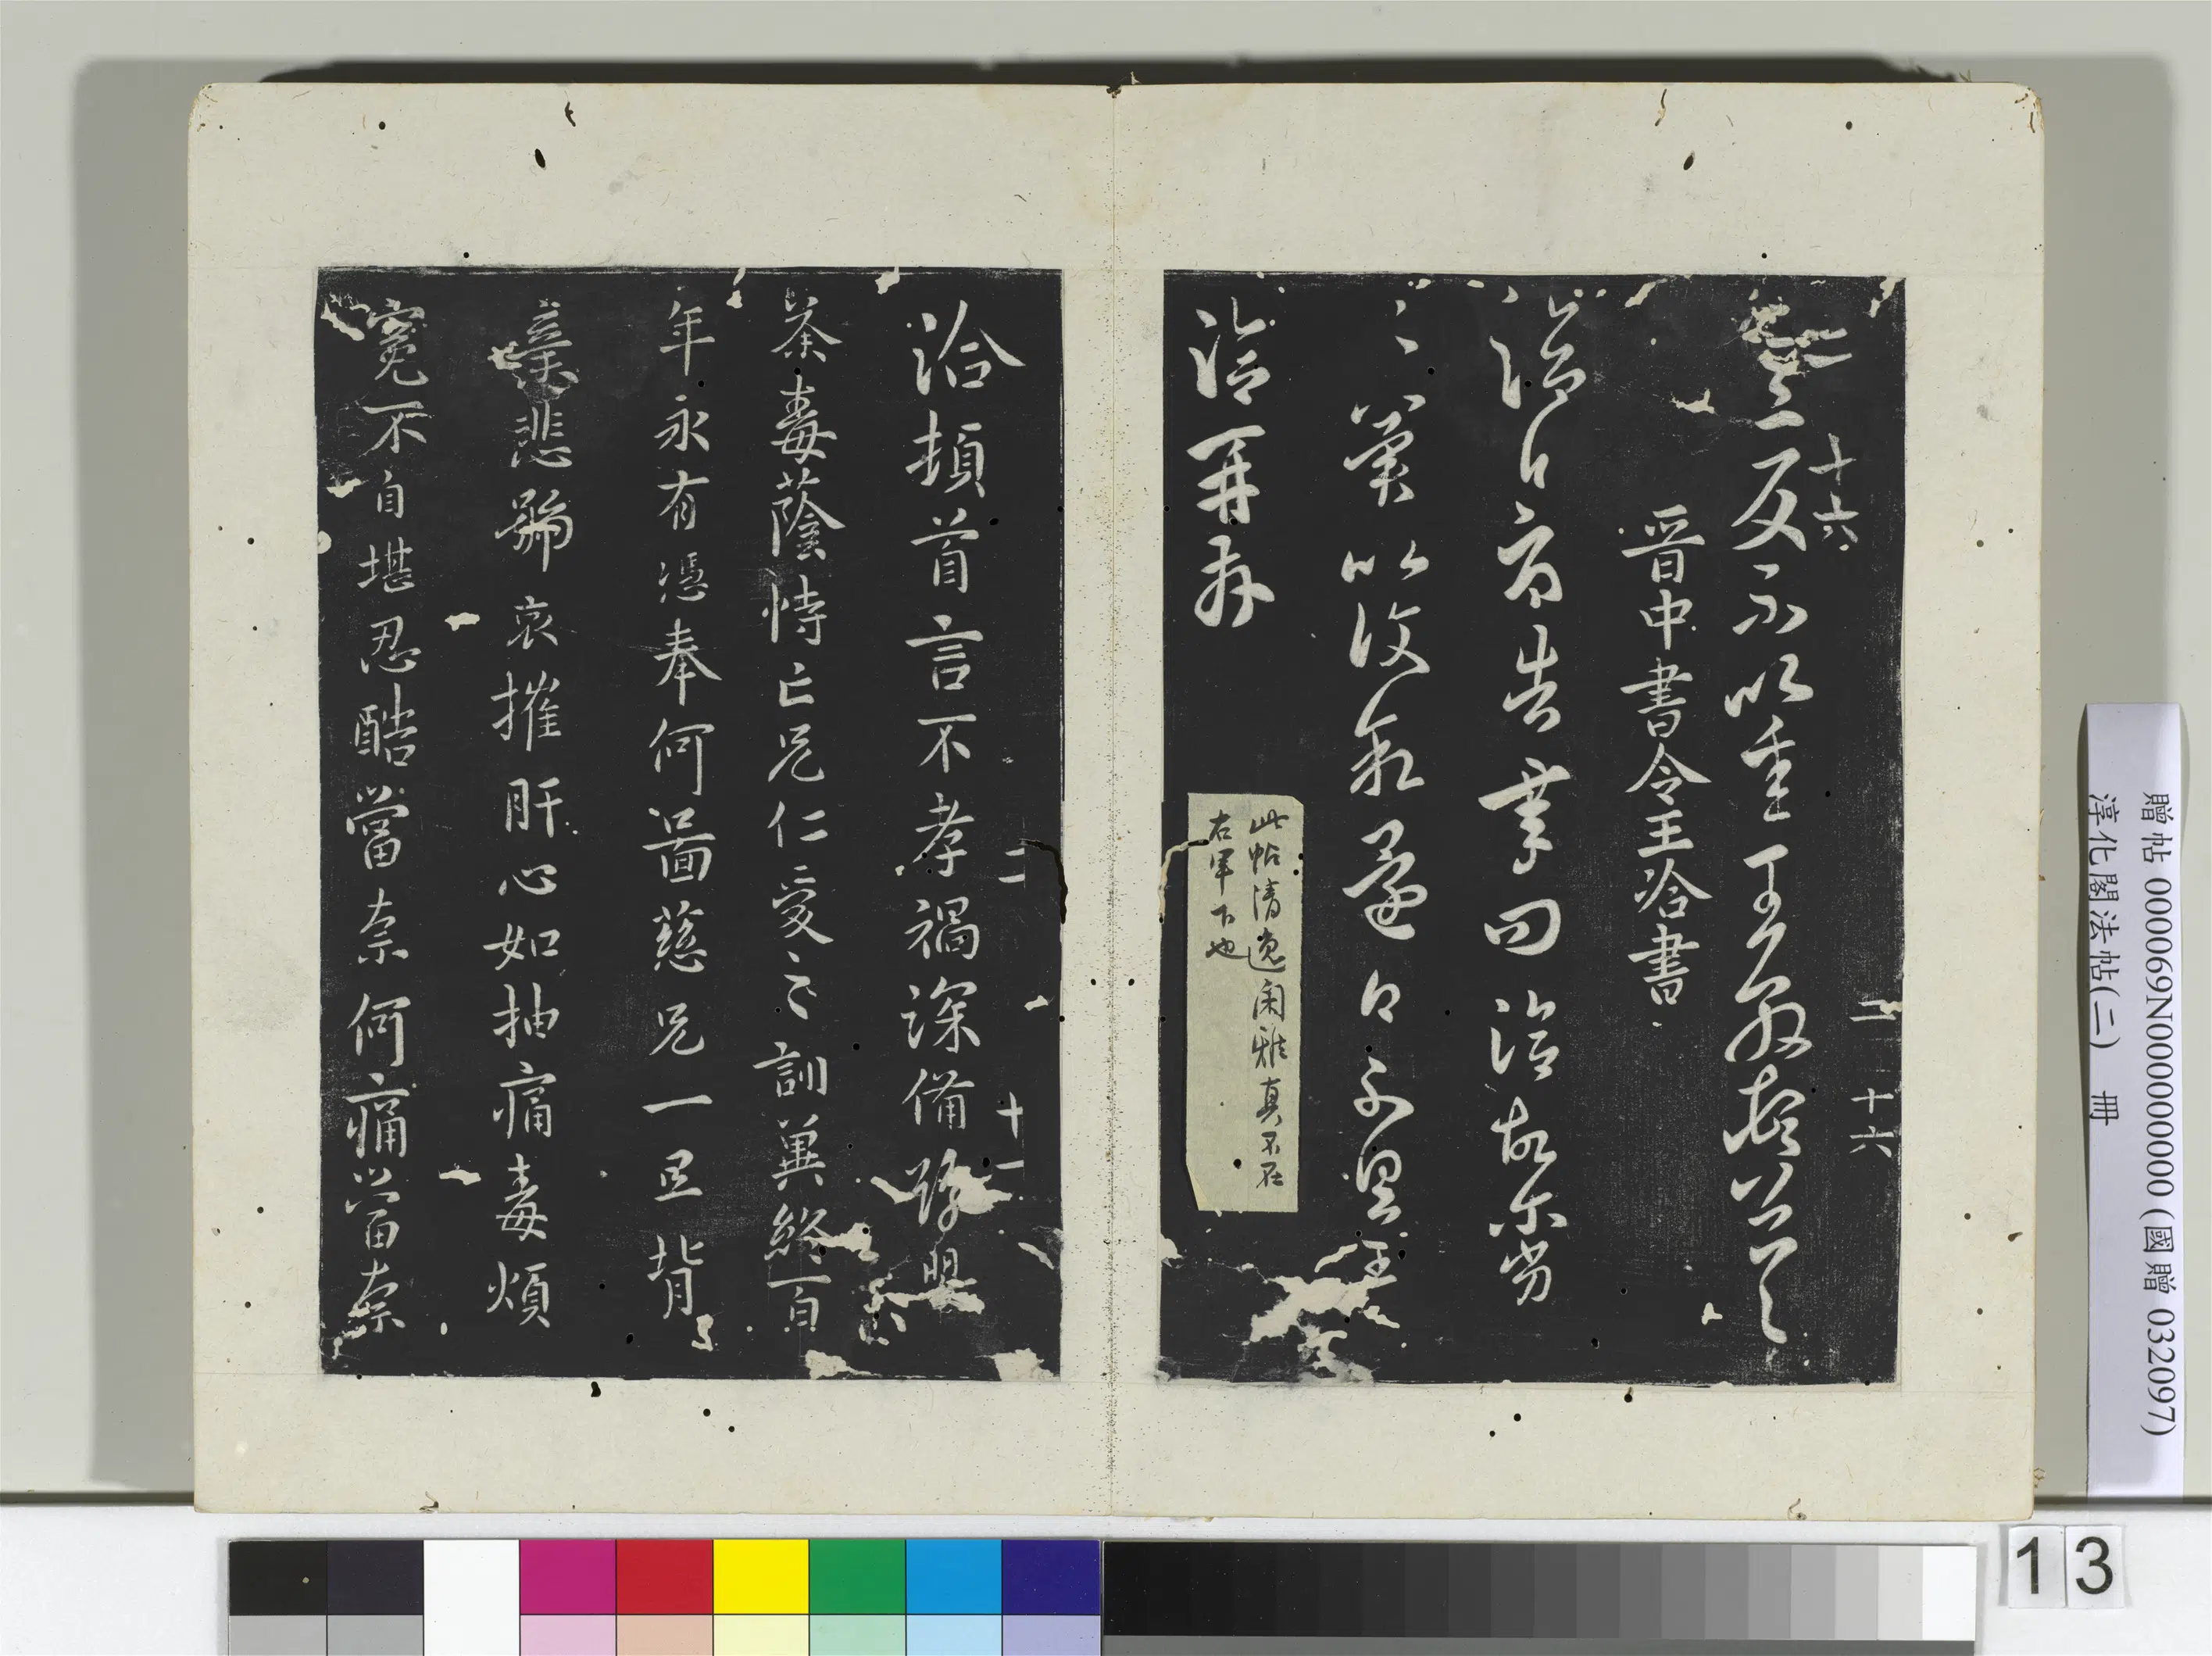 二 十六
十六
反不以悉王敦頓首頓首
晉中書令王洽書
洽白告洽故尔劣
〻冀以復敘還白不具王
洽再拜
此帖清逸閑雅真不在
右軍下也
二 十一
洽頓首言不孝禍深備豫嬰
荼毒蔭恃亡兄仁愛之訓冀終百
年永有憑奉何啚慈兄一旦背
棄悲號哀摧肝心如抽痛毒煩
冤不自堪忍酷當奈何痛當奈
贈帖 000069N000000000 (國贈 032097)
淳化閣法帖(二) 冊
13